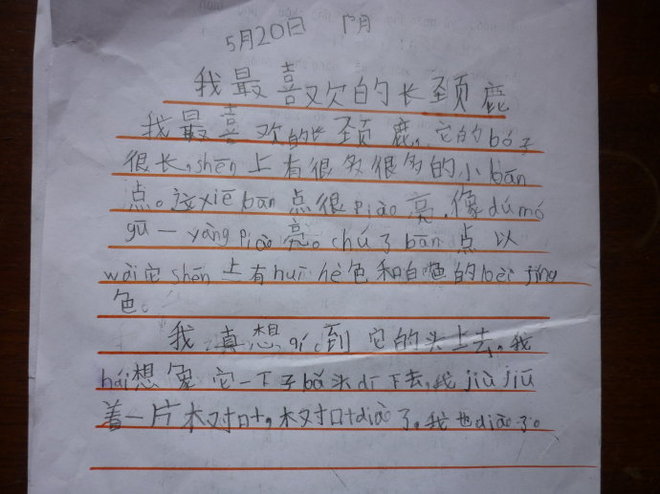 5月20日 阴
我最喜欢的长颈鹿
我最喜欢的长颈鹿,它的bó子
很长,shēn上有很多很多的小bān
点。这xiē bān点很piào亮,像dú mó
gū一yàng piào亮。chú了bān点以
wài它shēn上有huī hè色和白色的bèi jǐng
色。
我真想qí到它的头上去。我
hái想象它一下子bǎ头dī下去,我jiù jiū
着一片木对叶,木对叶diào了。我也diào了。